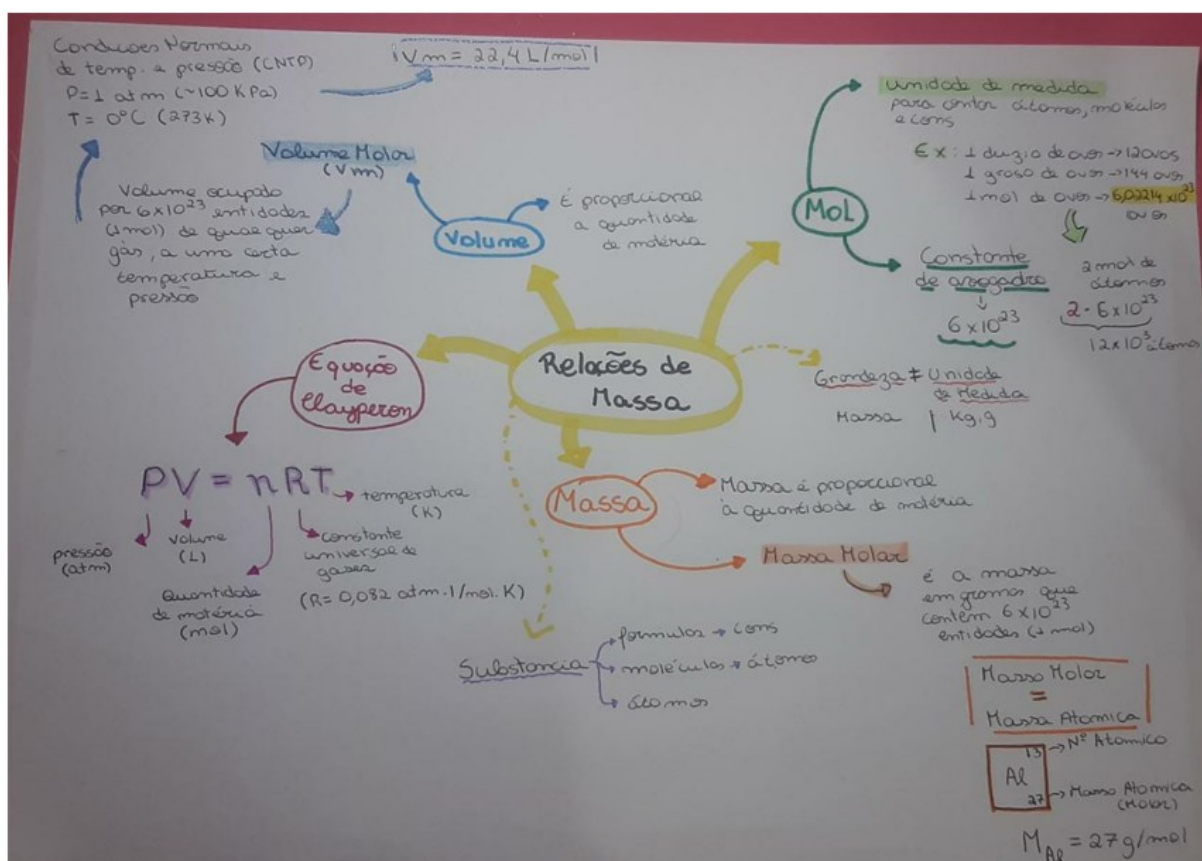 Condições Normais
de temp. e pressão (CNTP)
P=1 atm (~100 KPa)
T= 0°C (273K)
Vm = 22,4 L/mol
Volume Molar
(Vm)
Volume ocupado
por 6x10²³ entidades
(1mol) de qualquer
gás, a uma certa
temperatura e
pressão
Volume
É proporcional
a quantidade
de matéria
Mol
unidade de medida
para contar átomos, moléculas
e íons
Ex: 1 duzia de ovos → 12 ovos
1 grosa de ovos → 144 ovos
1 mol de ovos → 6,02214x10²³
ovos
Constante
de avogadro
6x10²³
2 mol de
átomos
2 · 6x10²³
12x10³ átomos
Relações de
Massa
Grandeza ≠ Unidade
de Medida
Massa | Kg, g
Equação
de
Clayperon
PV = nRT
temperatura
(K)
pressão
(atm)
volume
(L)
Quantidade
de matéria
(mol)
constante
universal de
gases
(R= 0,082 atm.l/mol.K)
Massa
Massa é proporcional
à quantidade de matéria
Massa Molar
é a massa
em gramas que
contém 6x10²³
entidades (1 mol)
Substancia
formulas → íons
moléculas → átomos
átomos
Massa Molar
=
Massa Atomica
13 → Nº Atomico
Al
27 → Massa Atomica
(Molar)
M Al = 27g/mol